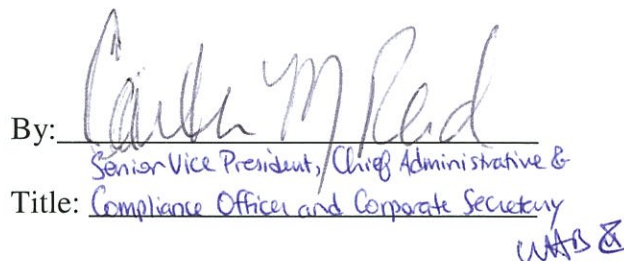 By: M Reid
Senior Vice President, Chief Administrative &
Title: Compliance Officer and Corporate Secretary